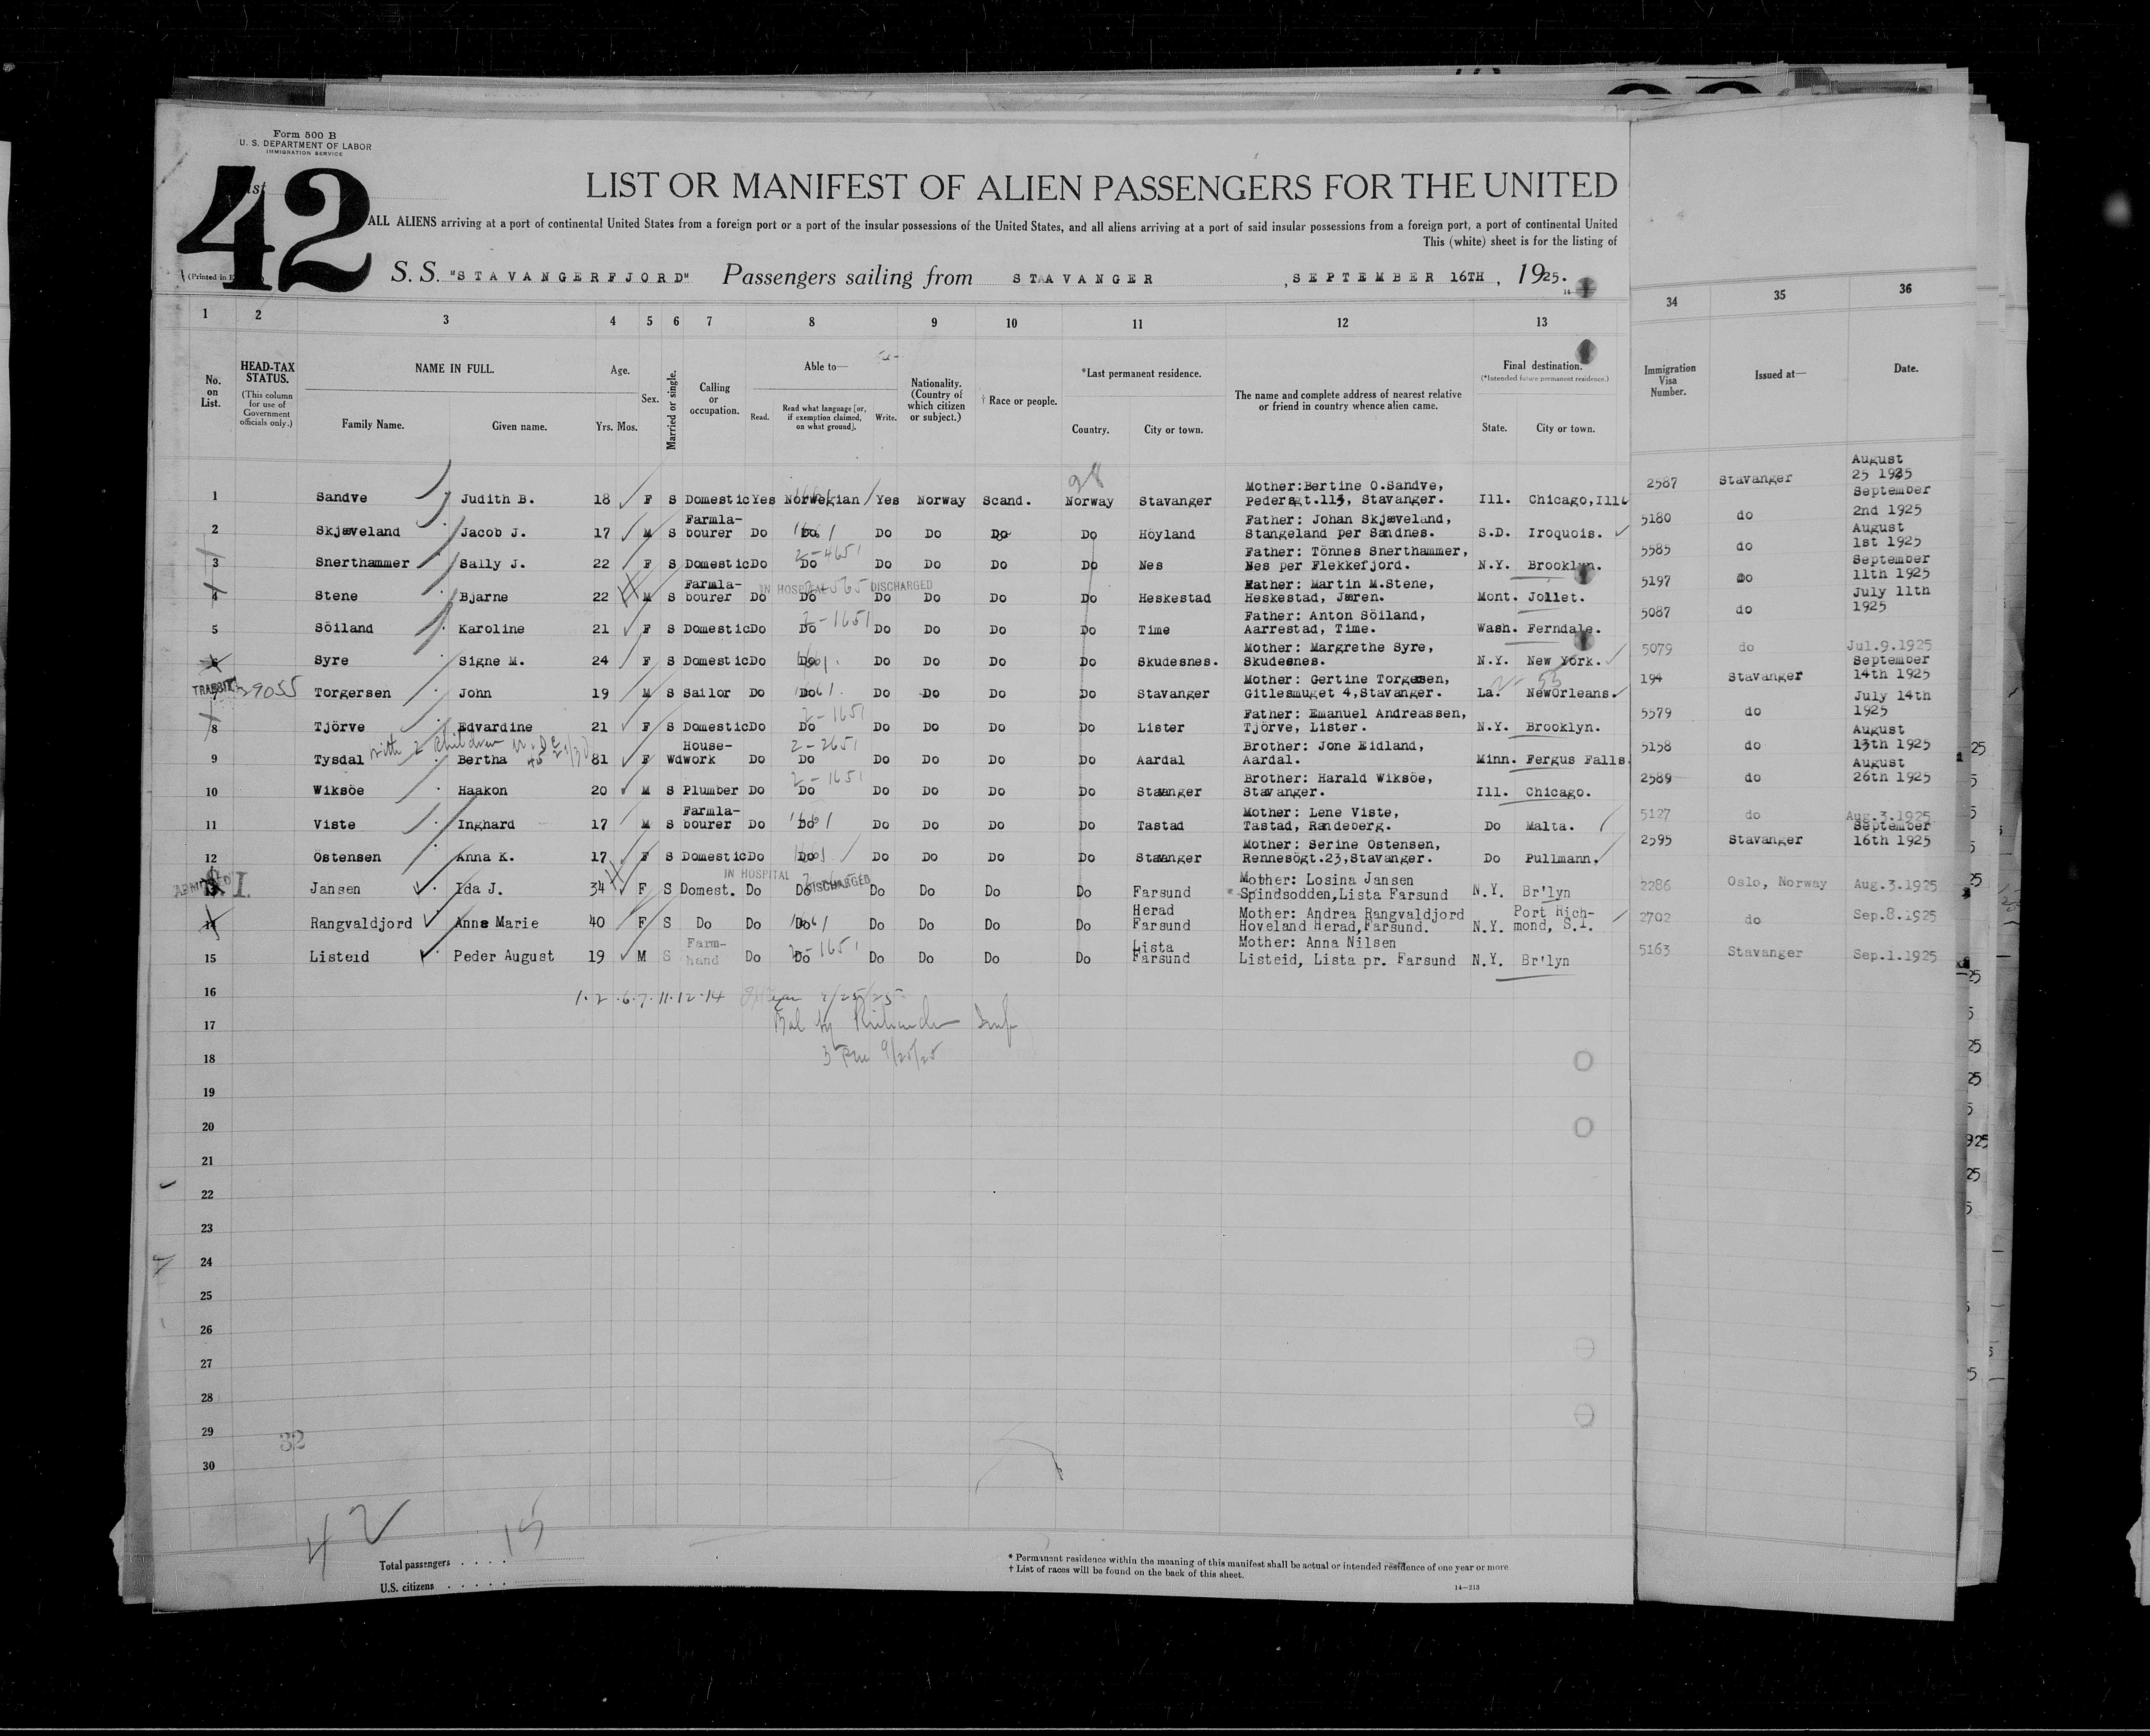 Form 500 B
U. S. DEPARTMENT OF LABOR
IMMIGRATION SERVICE
42
LIST OR MANIFEST OF ALIEN PASSENGERS FOR THE UNITED
ALL ALIENS arriving at a port of continental United States from a foreign port or a port of the insular possessions of the United States, and all aliens arriving at a port of said insular possessions from a foreign port, a port of continental United
This (white) sheet is for the listing of
S. S. "STAVANGERFJORD" Passengers sailing from STAVANGER , SEPTEMBER 16TH , 1925.
1 2 3 4 5 6 7 8 9 10 11 12 13 34 35 36
No. on List. HEAD-TAX STATUS. (This column for use of Government officials only.) NAME IN FULL. Family Name. Given name. Age. Yrs. Mos. Sex. Married or single. Calling or occupation. Able to— Read. Read what language [or, if exemption claimed, on what ground]. Write. Nationality. (Country of which citizen or subject.) † Race or people. *Last permanent residence. Country. City or town. The name and complete address of nearest relative or friend in country whence alien came. Final destination. (*Intended future permanent residence.) State. City or town. Immigration Visa Number. Issued at— Date.
28
1 Sandve Judith B. 18 F S Domestic Yes Norwegian Yes Norway Scand. Norway Stavanger Mother:Bertine O.Sandve, Pedersgt.113, Stavanger. Ill. Chicago,Ill 2587 Stavanger August 25 1925
2 Skjæveland Jacob J. 17 M S Farmla-bourer Do Do Do Do Do Do Höyland Father: Johan Skjæveland, Stangeland per Sandnes. S.D. Iroquois. 5180 do September 2nd 1925
3 Snerthammer Sally J. 22 F S Domestic Do Do 2-4651 Do Do Do Do Nes Father: Tönnes Snerthammer, Nes per Flekkefjord. N.Y. Brooklyn. 5585 do August 1st 1925
IN HOSPITAL DISCHARGED
4 Stene Bjarne 22 M S Farmla-bourer Do Do Do Do Do Do Heskestad Father: Martin M.Stene, Heskestad, Jæren. Mont. Joliet. 5197 do September 11th 1925
5 Söiland Karoline 21 F S Domestic Do Do 2-1651 Do Do Do Do Time Father: Anton Söiland, Aarrestad, Time. Wash. Ferndale. 5087 do July 11th 1925
6 Syre Signe M. 24 F S Domestic Do Do Do Do Do Do Skudesnes. Mother: Margrethe Syre, Skudesnes. N.Y. New York. 5079 do Jul.9.1925
TRANSIT 7 29055 Torgersen John 19 M S Sailor Do Do Do Do Do Do Stavanger Mother: Gertine Torgesen, Gitlesmuget 4,Stavanger. La. NewOrleans. 194 Stavanger September 14th 1925
8 Tjörve Edvardine 21 F S Domestic Do Do 2-1651 Do Do Do Do Lister Father: Emanuel Andreassen, Tjörve, Lister. N.Y. Brooklyn. 5579 do July 14th 1925
with 2 children
9 Tysdal Bertha 31 F Wd House-work Do Do 2-2651 Do Do Do Do Aardal Brother: Jone Eidland, Aardal. Minn. Fergus Falls. 5158 do August 13th 1925
10 Wiksöe Haakon 20 M S Plumber Do Do 2-1651 Do Do Do Do Stavanger Brother: Harald Wiksöe, Stavanger. Ill. Chicago. 2589 do August 26th 1925
11 Viste Inghard 17 M S Farmla-bourer Do Do 1661 Do Do Do Do Tastad Mother: Lene Viste, Tastad, Randeberg. Do Malta. 5127 do Aug.3.1925
12 Östensen Anna K. 17 F S Domestic Do Do 1661 Do Do Do Do Stavanger Mother: Serine Östensen, Rennesögt.23,Stavanger. Do Pullmann. 2595 Stavanger September 16th 1925
IN HOSPITAL DISCHARGED
ADMITTED 13 Jansen Ida J. 34 F S Domest. Do Do Do Do Do Do Farsund Mother: Losina Jansen Spindsodden,Lista Farsund N.Y. Br'lyn 2286 Oslo, Norway Aug.3.1925
14 Rangvaldjord Anne Marie 40 F S Do Do Do 1661 Do Do Do Do Herad Farsund Mother: Andrea Rangvaldjord Hoveland Herad,Farsund. N.Y. Port Rich-mond, S.I. 2702 do Sep.8.1925
15 Listeid Peder August 19 M S Farm-hand Do Do 2-1651 Do Do Do Do Lista Farsund Mother: Anna Nilsen Listeid, Lista pr. Farsund N.Y. Br'lyn 5163 Stavanger Sep.1.1925
16 1.2.6.7.11.12.14 9/25/25
17 Bal by
18 9/25/25
19
20
21
22
23
24
25
26
27
28
29
32
30
42 15
Total passengers . . . .
U.S. citizens . . . . .
* Permanent residence within the meaning of this manifest shall be actual or intended residence of one year or more
† List of races will be found on the back of this sheet.
14—213